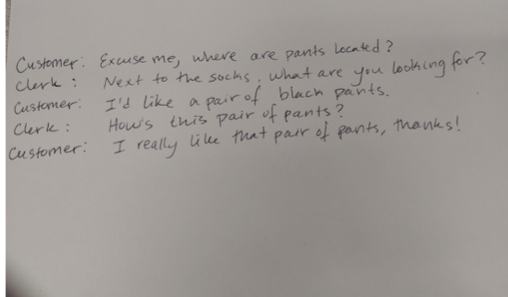 Customer: Excuse me, where are pants located?
Clerk: Next to the socks. What are you looking for?
Customer: I'd like a pair of black pants.
Clerk: How's this pair of pants?
Customer: I really like that pair of pants, thanks!